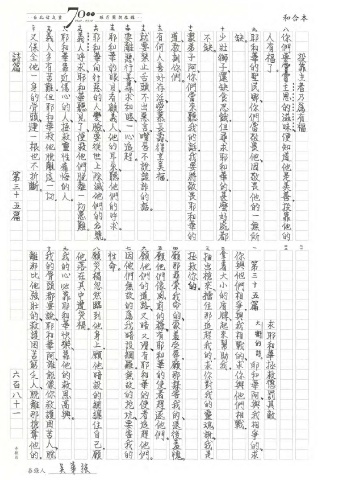 和合本
投靠主者乃為有福
八你們要嘗嘗主恩的滋味便知道他是美善投靠他的
人有福了
耶和華的聖民哪你們當敬畏他因敬畏他的一無所
缺
少壯獅子還缺食忍餓但尋求耶和華的甚麼好處都
不缺
眾弟子阿你們當來聽我的話我要將敬畏耶和華的
道教訓你們
有何人喜好存活愛慕長壽得享美福
就要禁止舌頭不出惡言嘴唇不說詭詐的話
要離惡行善尋求和睦一心追趕
耶和華的眼目看顧義人他的耳朵聽他們的呼求
耶和華向行惡的人變臉要從世上除滅他們的名號
義人呼求耶和華聽見了便救他們脫離一切患難
耶和華靠近傷心的人拯救靈性痛悔的人
義人多有苦難但耶和華救他脫離這一切
又保全他一身的骨頭連一根也不折斷
詩篇 第三十五篇
求耶和華拯救懲罰其敵
第三十五篇
大衛的詩 耶和華阿與我相爭的求
你與他們相爭與我相戰的求你與他們相戰
拿著大小的盾牌起來幫助我
抽出槍來擋住那追趕我的求你對我的靈魂說我是
拯救你的
願那尋索我命的蒙羞受辱願那謀害我的退後羞愧
願他們像風前的糠有耶和華的使者趕逐他們
願他們的道路又暗又滑有耶和華的使者追趕他們
因他們無故的為我暗設網羅無故的挖坑要害我的
性命
願災禍忽然臨到他身上願他暗設的網纏住自己願
他落在其中遭災禍
我的心必靠耶和華快樂靠他的救恩高興
我的骨頭都要說耶和華阿誰能像你救護困苦人脫
離那比他強壯的救護困苦窮乏人脫離那搶奪他的
六百八十一